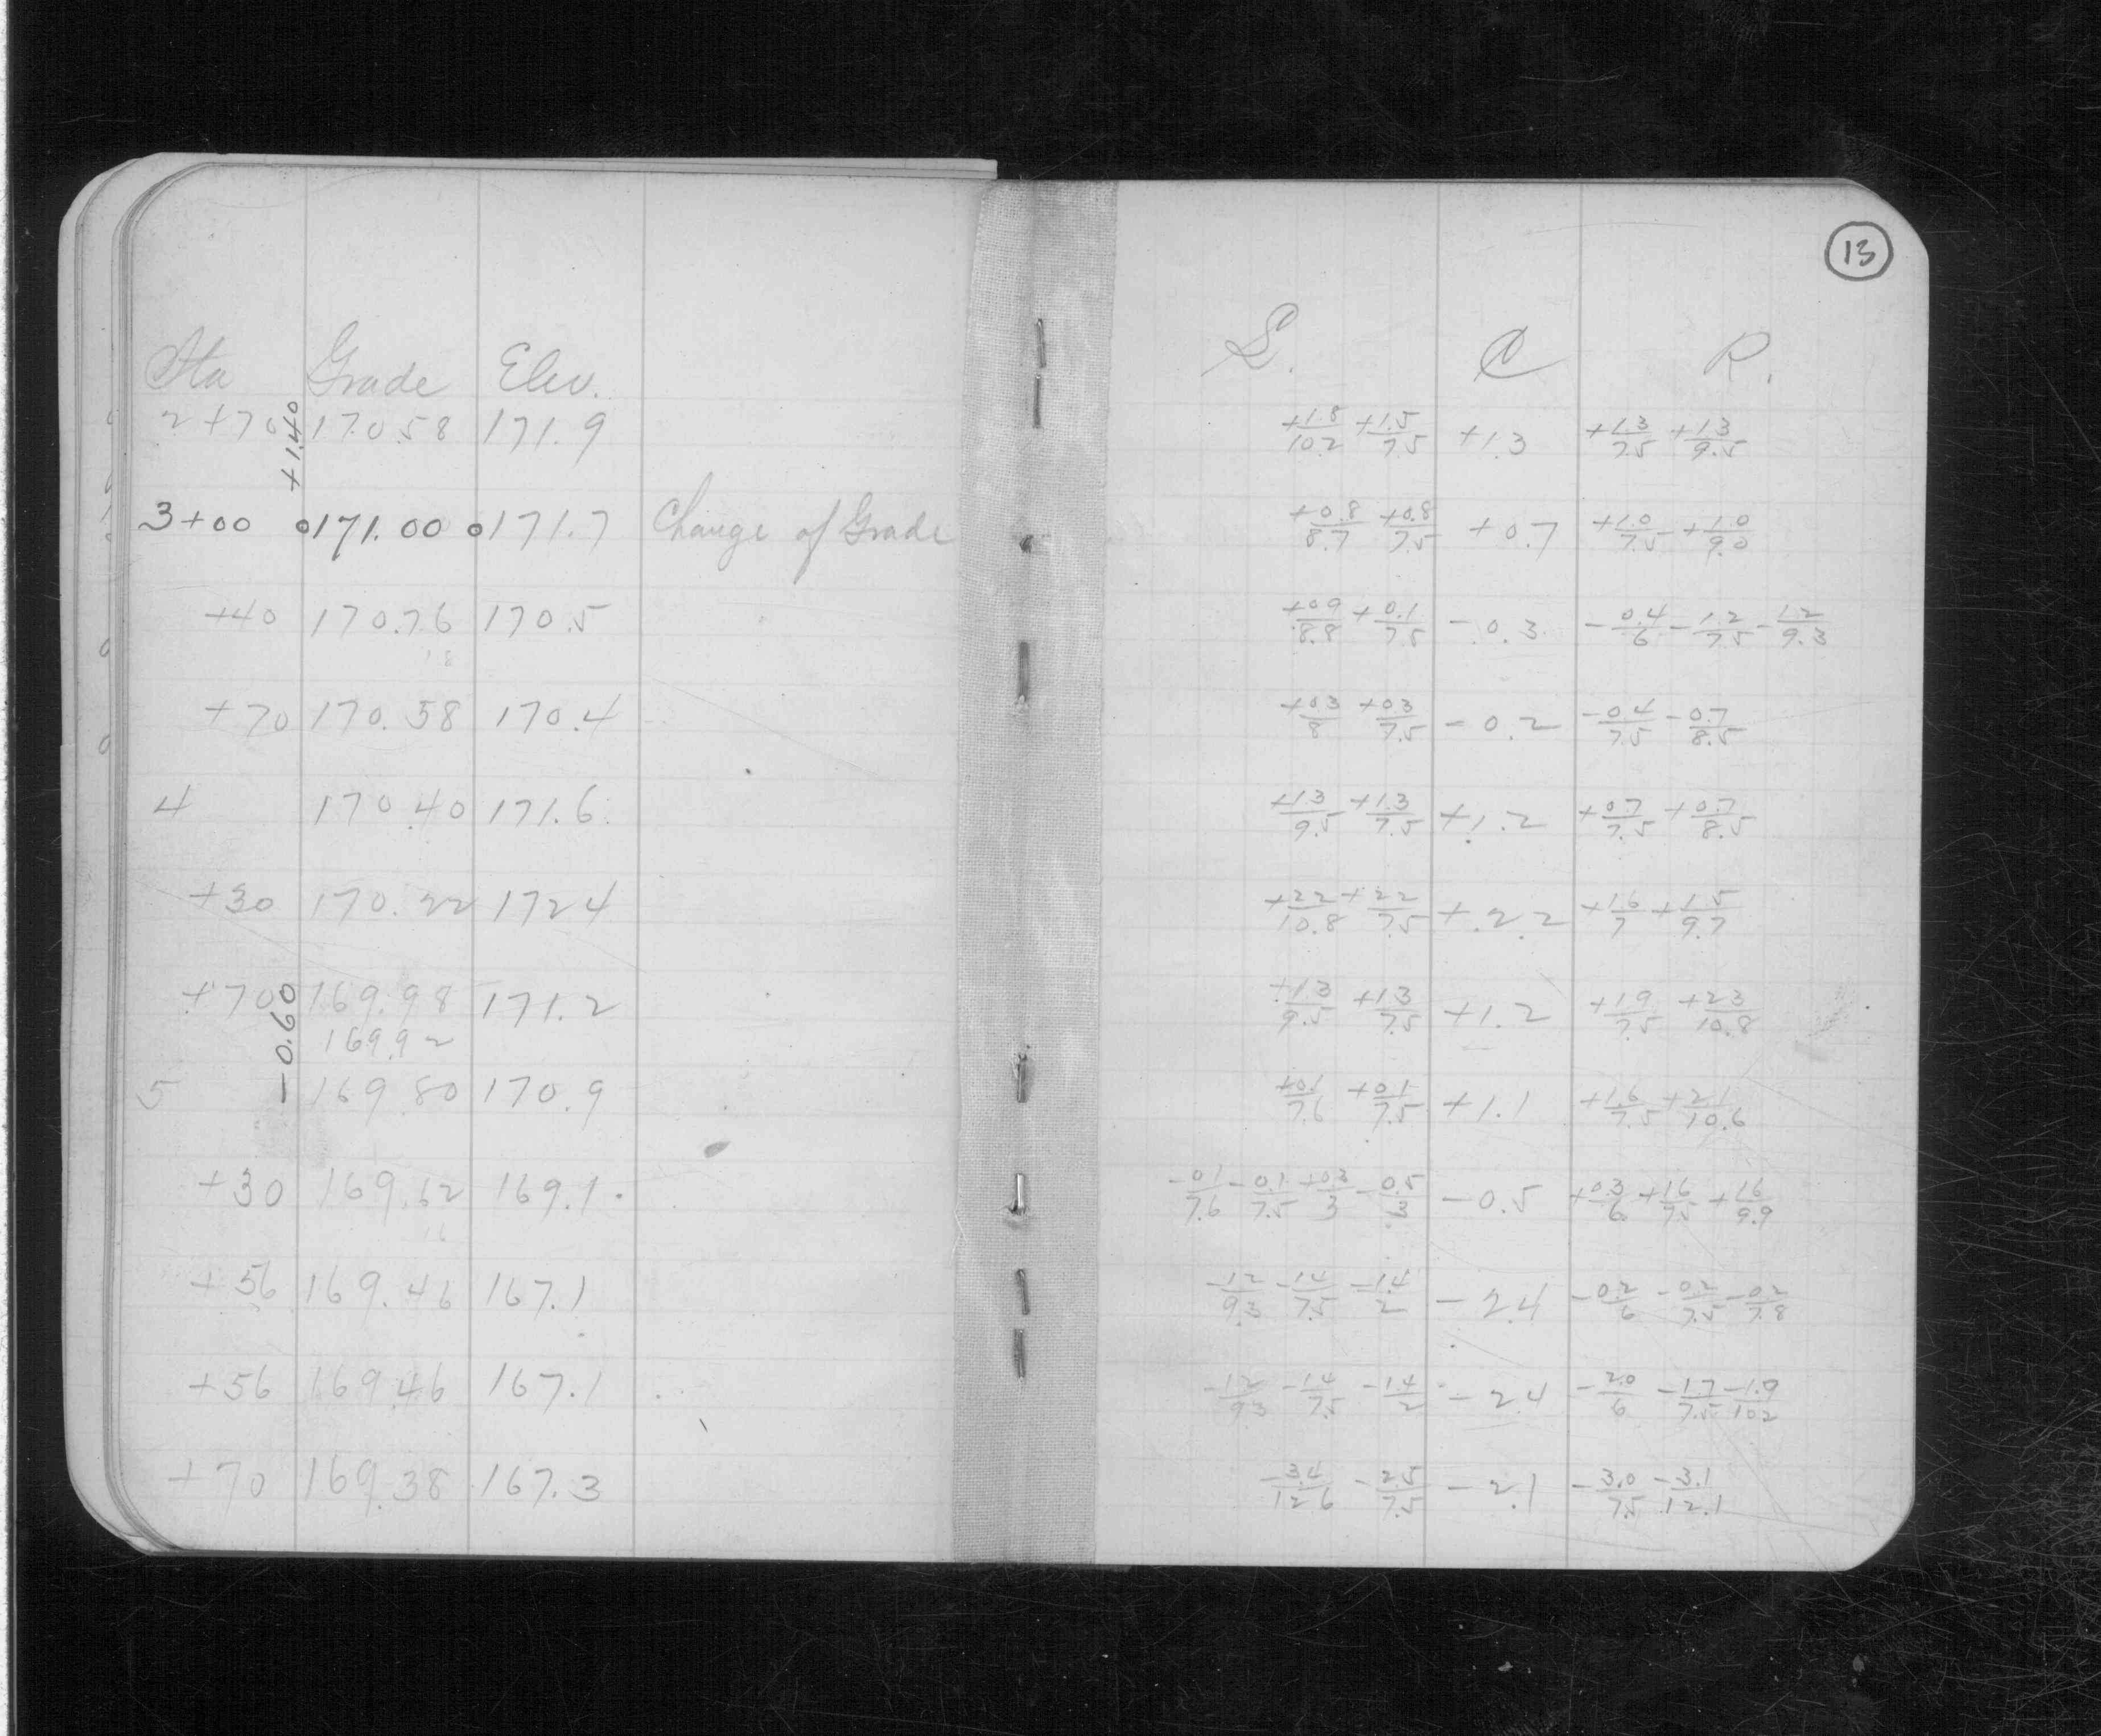 13
Sta Grade Elev. L. C R.
2+70 170.58 171.9 +1.8/10.2 +1.5/7.5 +1.3 +1.3/7.5 +1.3/9.5
+1.40
3+00 171.00 171.7 Change of Grade +0.8/8.7 +0.8/7.5 +0.7 +1.0/7.5 +1.0/9.0
+40 170.76 170.5 +0.9/8.8 +0.1/7.5 -0.3 -0.4/6 -1.2/7.5 -1.2/9.3
18
+70 170.58 170.4 +0.3/8 +0.3/7.5 -0.2 -0.4/7.5 -0.7/8.5
4 170.40 171.6 +1.3/9.5 +1.3/7.5 +1.2 +0.7/7.5 +0.7/8.5
+30 170.22 172.4 +2.2/10.8 +2.2/7.5 +2.2 +1.6/7 +1.5/9.7
+70 169.98 171.2 +1.3/9.5 +1.3/7.5 +1.2 +1.9/7.5 +2.3/10.8
-0.60
169.92
5 169.80 170.9 +0.1/7.6 +0.1/7.5 +1.1 +1.6/7.5 +2.1/10.6
+30 169.62 169.1 -0.1/7.6 -0.1/7.5 +0.3/3 -0.5/3 -0.5 +0.3/6 +1.6/7.5 +1.6/9.9
16
+56 169.46 167.1 -1.2/9.3 -1.4/7.5 -1.4/2 -2.4 -0.2/6 -0.2/7.5 -0.2/7.8
+56 169.46 167.1 -1.2/9.3 -1.4/7.5 -1.4/2 -2.4 -2.0/6 -1.7/7.5 -1.9/10.2
+70 169.38 167.3 -3.4/12.6 -2.5/7.5 -2.1 -3.0/7.5 -3.1/12.1